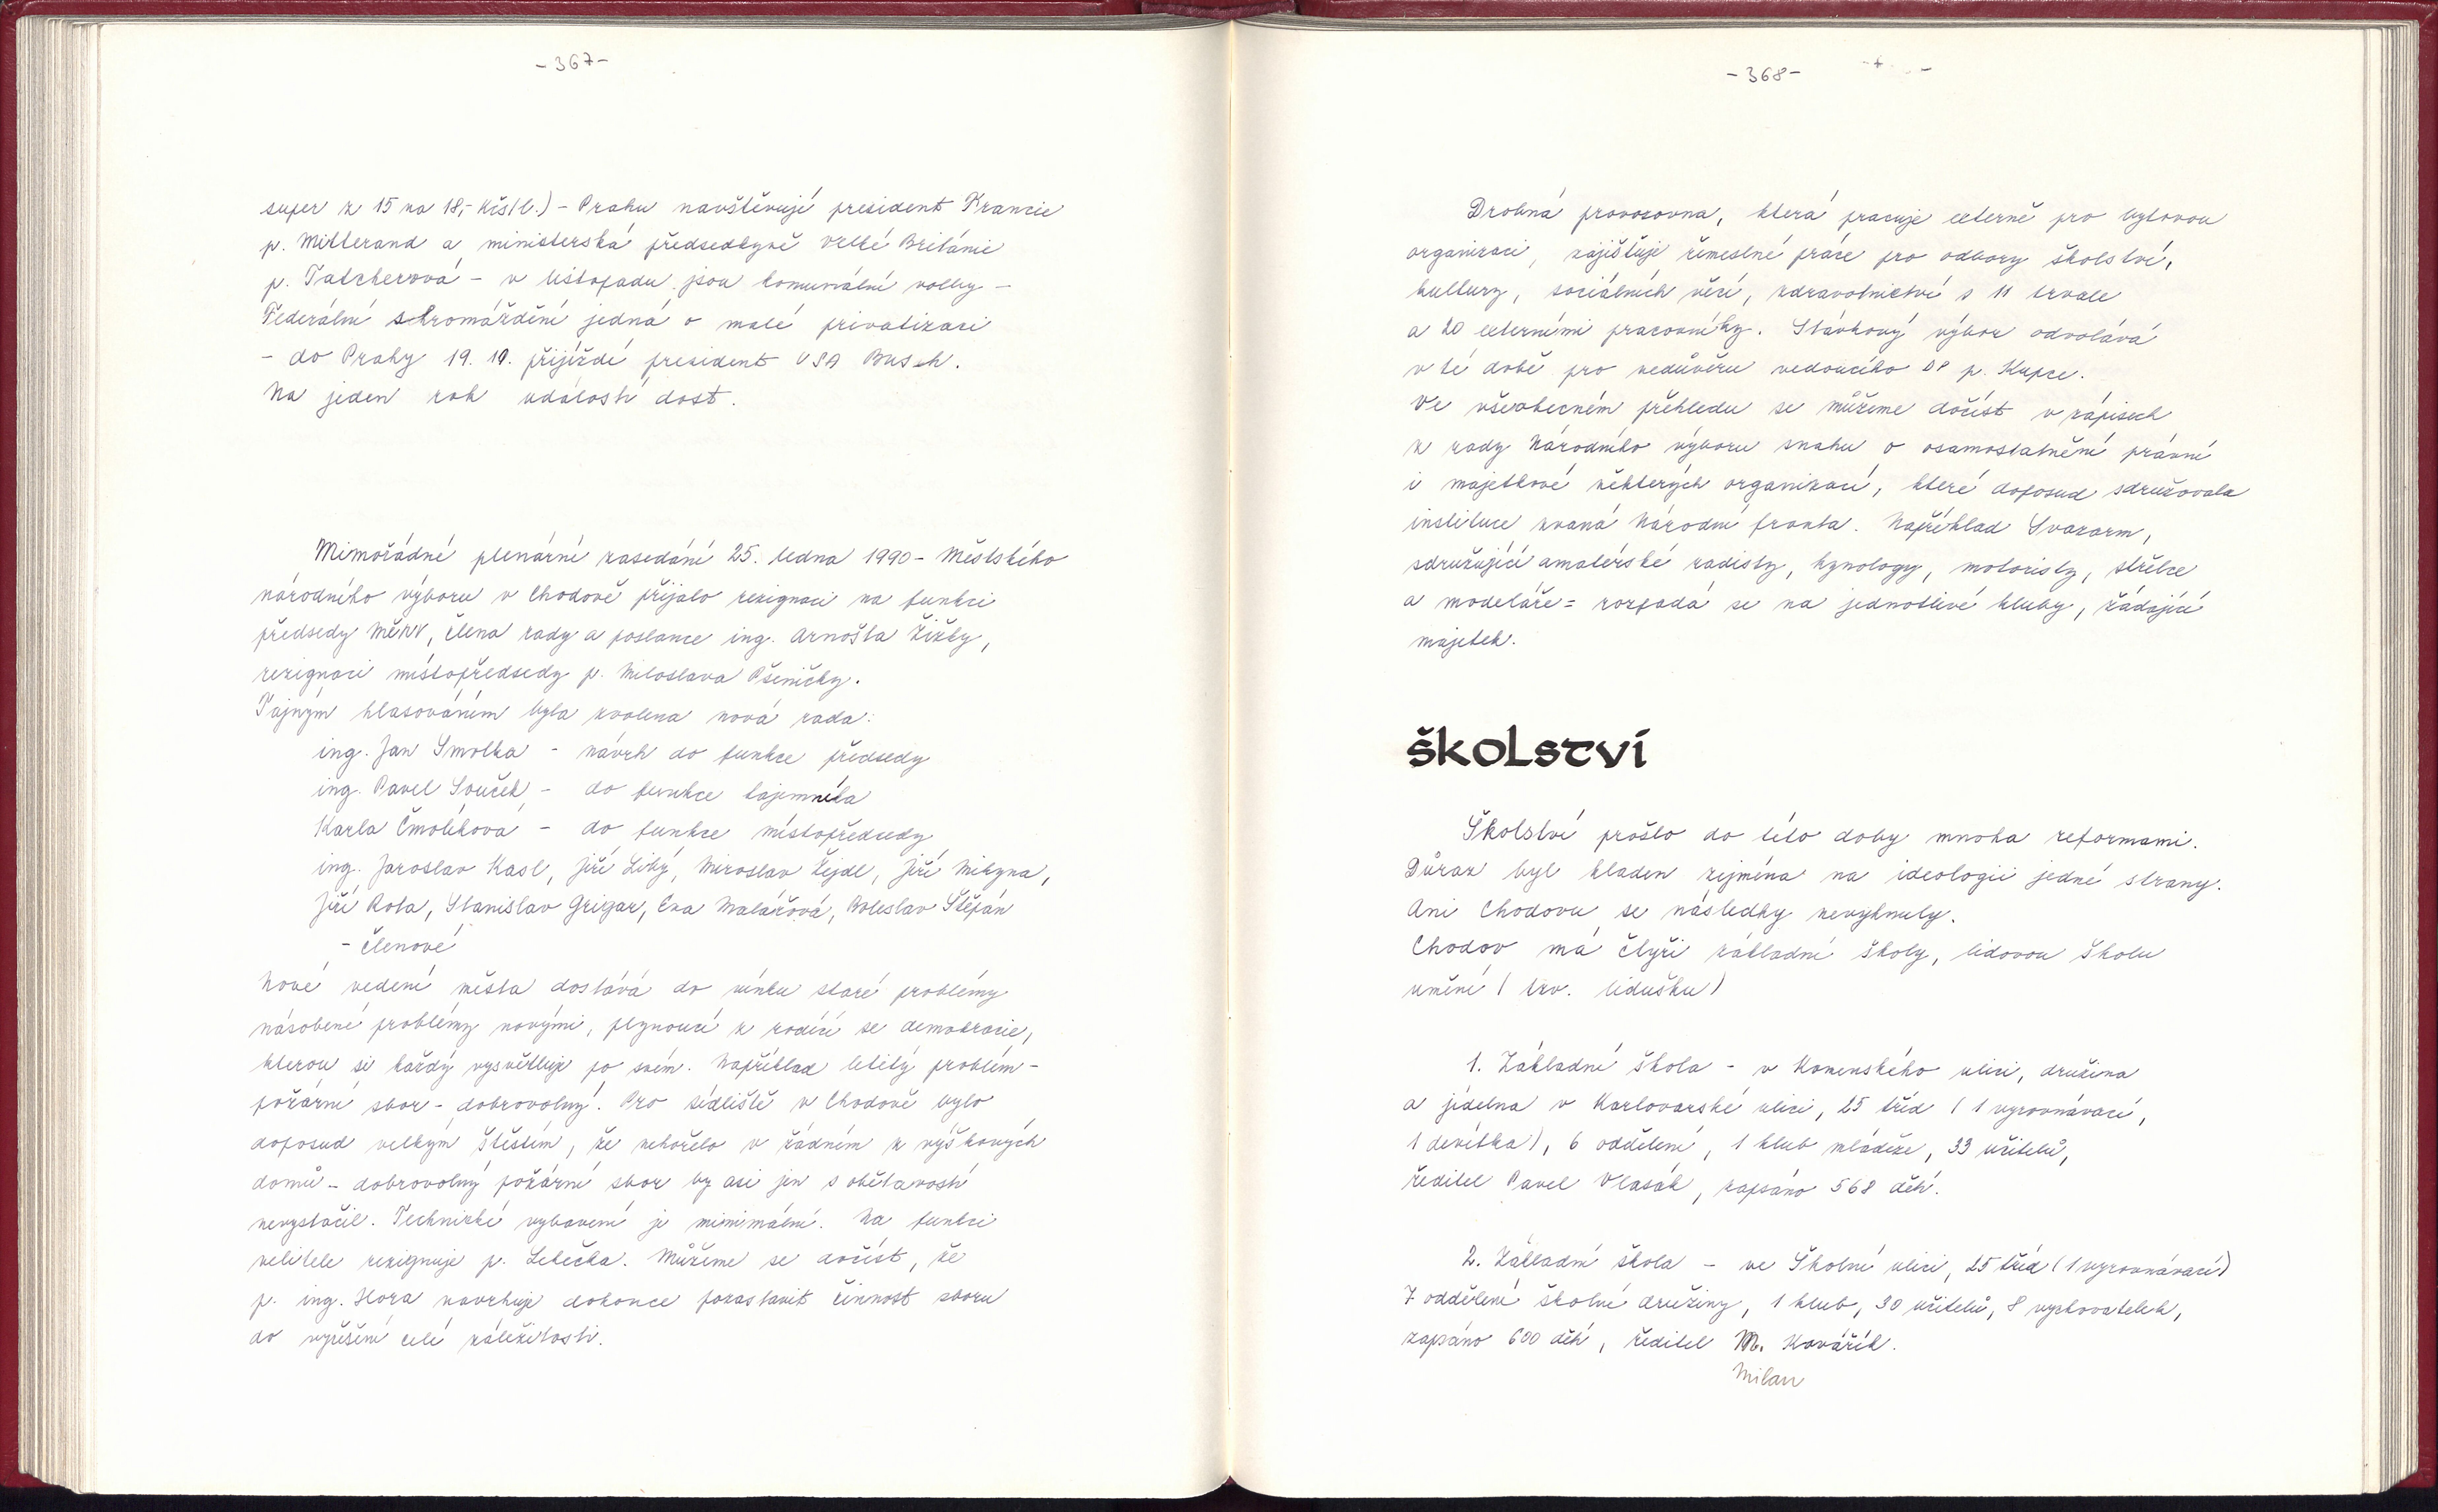 - 367 -
super z 15 na 18,- Kčs/l.) - Prahu navštěvují president Francie
p. Mitterand a ministerská předsedkyně Velké Británie
p. Tatcherová - v listopadu jsou komunální volby -
Federální shromáždění jedná o malé privatizaci
- do Prahy 19. 10. přijíždí president USA Busch.
Na jeden rok událostí dost.
Mimořádné plenární zasedání 25. ledna 1990 - Městského
národního výboru v Chodově přijalo rezignaci na funkci
předsedy MěNV, člena rady a poslance ing. Arnošta Žižky,
rezignaci místopředsedy p. Miloslava Pšeničky.
Tajným hlasováním byla zvolena nová rada:
ing. Jan Smolka - návrh do funkce předsedy
ing. Pavel Souček - do funkce tajemníka
Karla Čmolíková - do funkce místopředsedy
ing. Jaroslav Kasl, Jiří Libý, Miroslav Žejdl, Jiří Mikyna,
Jiří Rota, Stanislav Grigar, Eva Malářová, Boleslav Štěpán
- členové
Nové vedení města dostává do vínku staré problémy
násobené problémy novými, plynoucí z rodící se demokracie,
kterou si každý vysvětluje po svém. Například letitý problém -
požární sbor - dobrovolný. Pro sídliště v Chodově bylo
doposud velkým štěstím, že nehořelo v žádném z výškových
domů - dobrovolný požární sbor by asi jen s obětavostí
nevystačil. Technické vybavení je minimální. Na funkci
velitele rezignuje p. Lebečka. Můžeme se dočíst, že
p. ing. Hora navrhuje dokonce pozastavit činnost sboru
do vyřešení celé záležitosti.
- 368 -
Drobná provozovna, která pracuje externě pro bytovou
organizaci, zajišťuje řemeslné práce pro odbory školství,
kultury, sociálních věcí, zdravotnictví s 11 trvale
a 20 externími pracovníky. Stávkový výbor odvolává
v té době pro nedůvěru vedoucího DP p. Kupce.
Ve všeobecném přehledu se můžeme dočíst v zápisech
z rady Národního výboru snahu o osamostatnění právní
i majetkové některých organizací, které doposud sdružovala
instituce zvaná Národní fronta. Například Svazarm,
sdružující amatérské radisty, kynology, motoristy, střelce
a modeláře = rozpadá se na jednotlivé kluby, žádající
majetek.
školství
Školství prošlo do této doby mnoha reformami.
Důraz byl kladen zejména na ideologii jedné strany.
Ani Chodovu se následky nevyhnuly.
Chodov má čtyři základní školy, lidovou školu
umění ( tzv. lidušku )
1. Základní škola - v Komenského ulici, družina
a jídelna v Karlovarské ulici, 25 tříd ( 1 vyrovnávací,
1 devítka ), 6 oddělení, 1 klub mládeže, 33 učitelů,
ředitel Pavel Vlasák, zapsáno 568 dětí.
2. Základní škola - ve Školní ulici, 25 tříd ( 1 vyrovnávací )
7 oddělení školní družiny, 1 klub, 30 učitelů, 8 vychovatelek,
zapsáno 600 dětí, ředitel M. Kovářík.
Milan